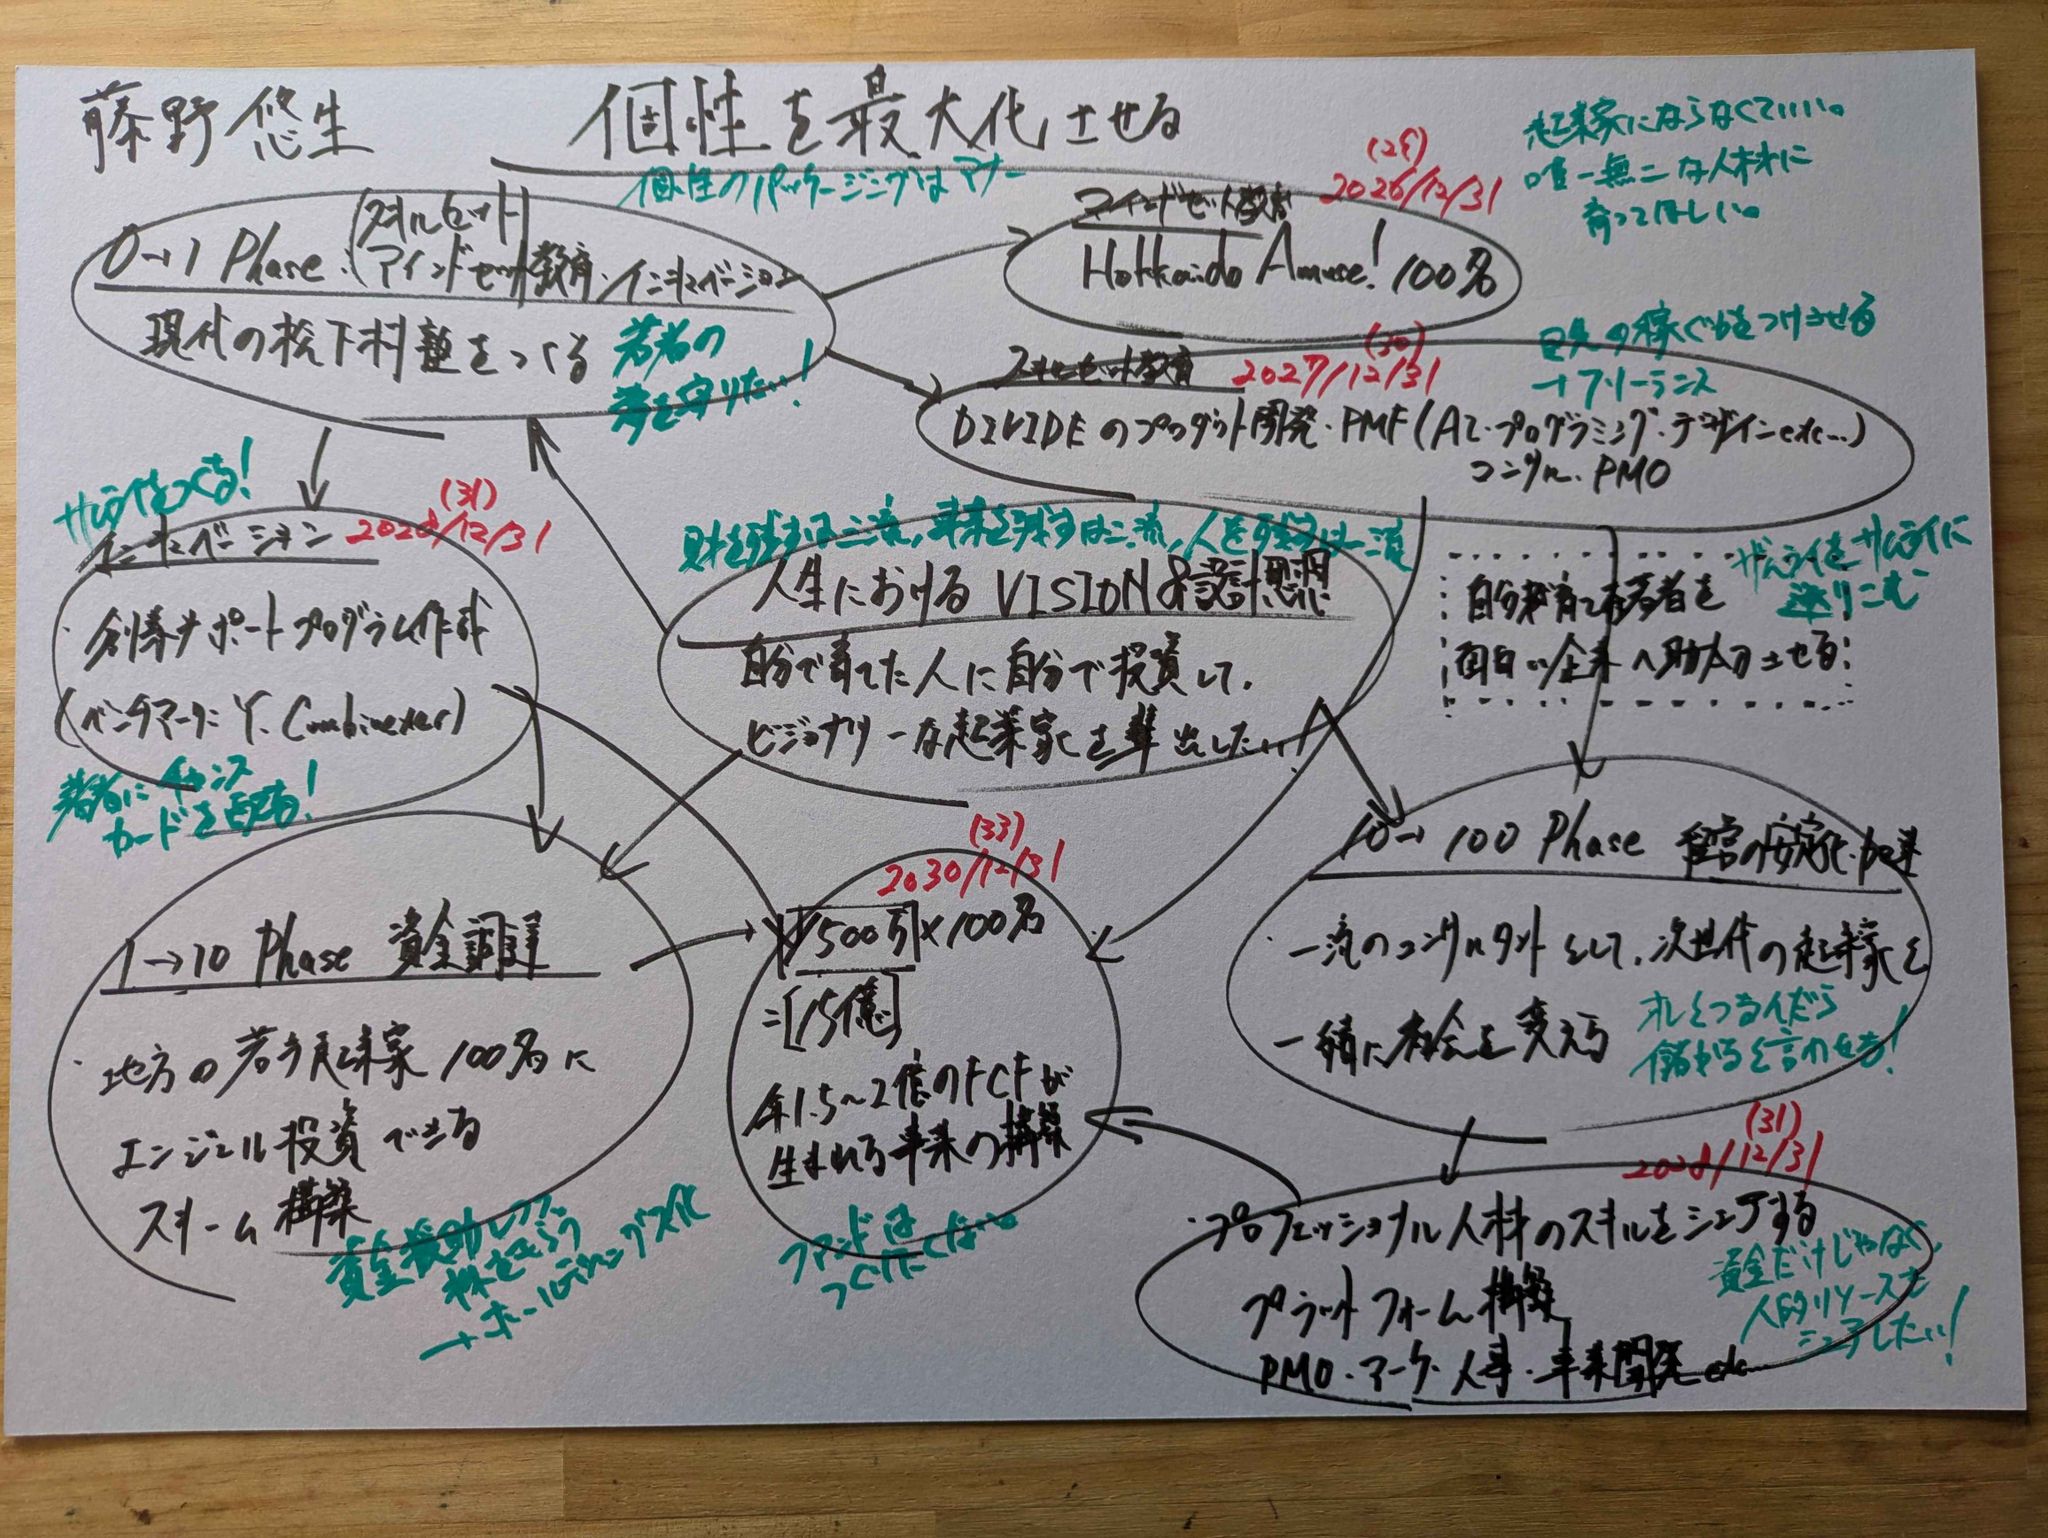 藤野 悠生
個性を最大化させる
個性のパッケージングはマナー
起業家にならなくていい。
唯一無二な人材に
育ってほしい。
0→1 Phase・(スキルセット
マインドセット)教育・インキュベーション
現代の松下村塾をつくる
若者の
夢を守りたい!
(29)
2026/12/31
マインドセット教育
Hokkaido Amuse! 100名
目先の稼ぐ力をつけさせる
→フリーランス
(30)
スキルセット教育 2027/12/31
DIVIDEのプロダクト開発・PMF(AI・プログラミング・デザインetc...)
コンサル・PMO
サムライをつくる!
(31)
インキュベーション 2028/12/31
・創業サポートプログラム作成
(ベンチマークに Y. Combinator)
若者にチャンス
カードを配る!
財を残すは三流,事業を残すは二流,人を残すは一流
人生におけるVISION&設計思想
自分で育てた人に自分で投資して、
ビジョナリーな起業家を輩出したい!
サムライをサムライに
送りこむ
自分が育てた若者を
面白い企業へ助太刀させる
1→10 Phase 資金調達
・地方の若手起業家100名に
エンジェル投資できる
スキーム構築
資金援助しつつ
株をもらう
→ホールディングス化
(33)
2030/12/31
1500万×100名
=[15億]
年1.5~2億のFCFが
生まれる事業の構築
ファンドは
つくりたくない。
10→100 Phase 経営の安定化・加速
・一流のコンサルタントとして、次世代の起業家と
一緒に社会を変える
オレとつるんだら
儲かると言わせる!
(31)
2028/12/31
・プロフェッショナル人材のスキルをシェアする
プラットフォーム構築
PMO・マーケ・人事・事業開発etc...
資金だけじゃなく、
人的リソースも
シェアしたい!